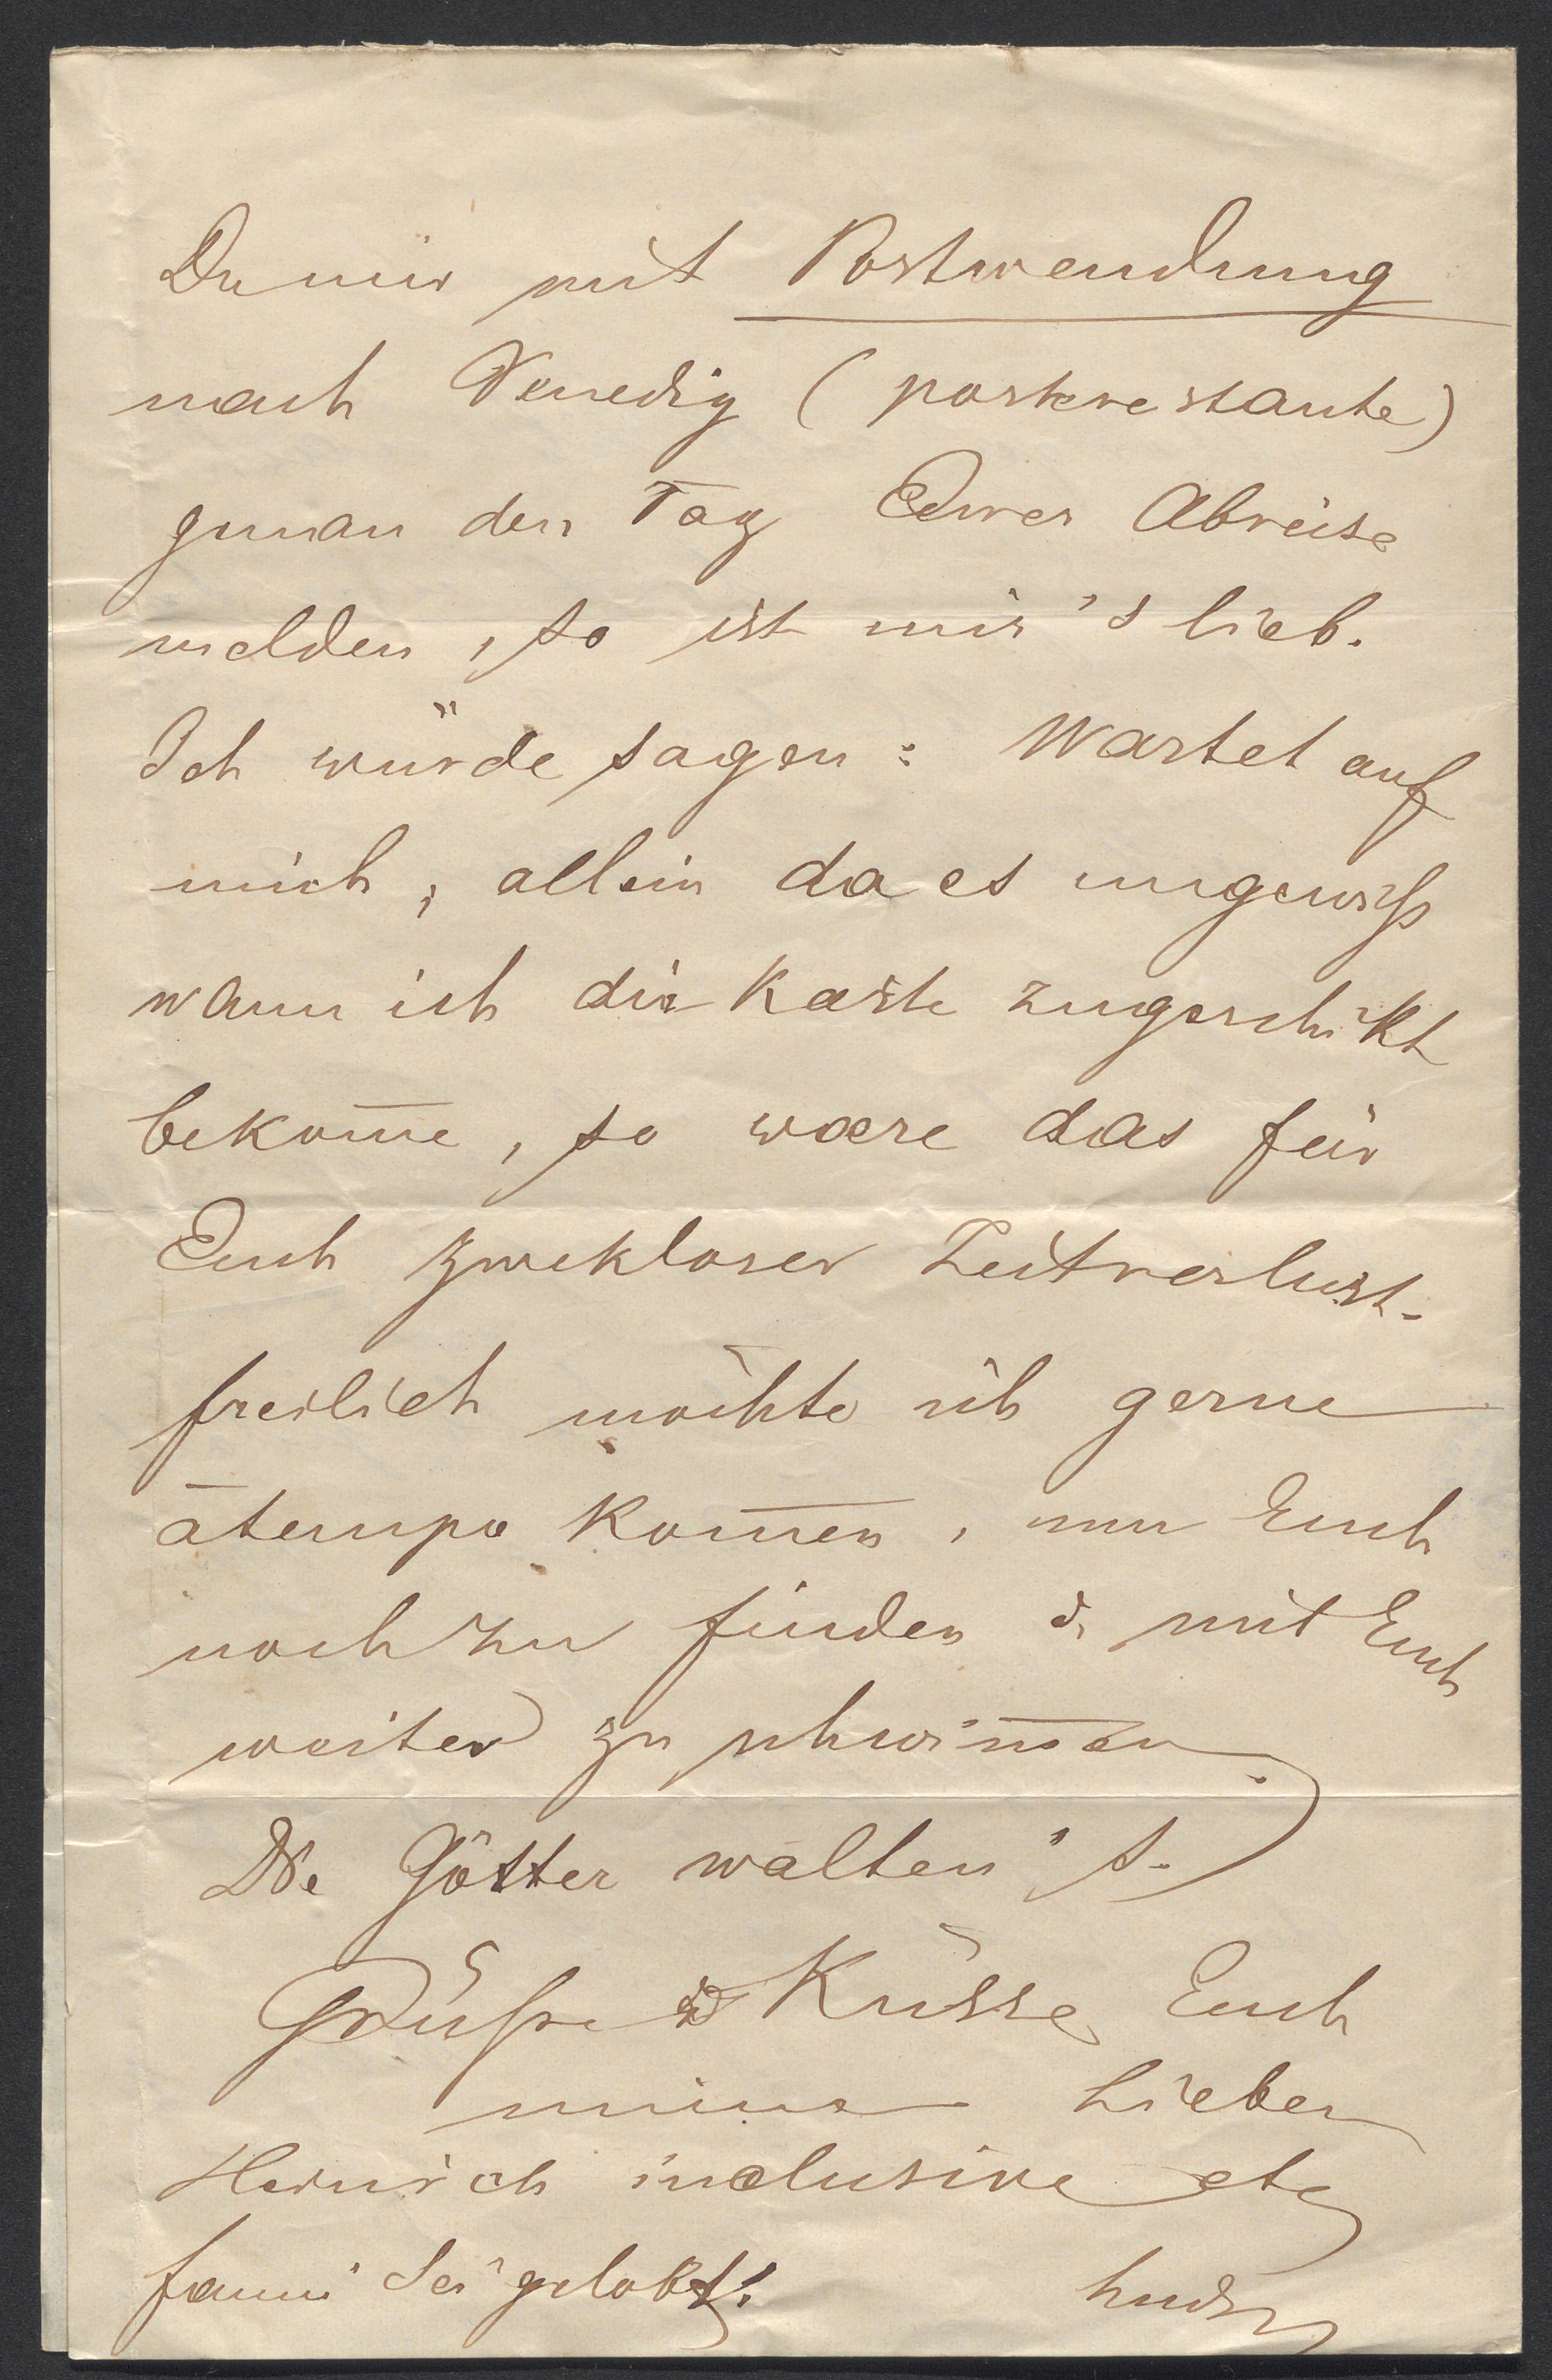 Du mir mit Postwendung
nach Venedig (poste restante)
genau den Tag Eurer Abreise
melden, so ist mir's lieb.
Ich würde sagen: Wartet auf
mich, allein da es ungewiß
wann ich die Karte zugeschikt
bekom̅e, so wære das für
Euch zwekloser Zeitverlust.
freilich möchte ich gerne
àtempo kom̅en, um Euch
noch zu finden & mit Euch
weiter zu schwim̅en.
Die Götter walten's.
Grüße & Küsse Euch
meine Lieben
Heinrich inclusive etc
fanni sei gelobt!